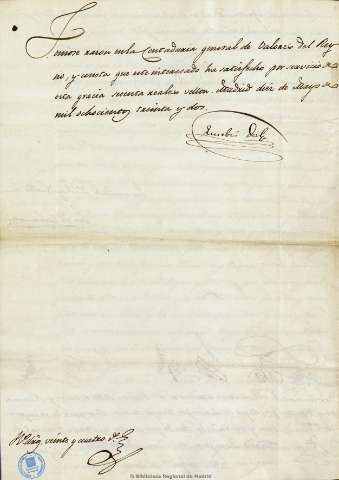 Tomose razon en la Contaduria general de Valores del Rey
no, y consta que este interesado ha satisfecho por servicio de
esta gracia sesenta reales vellon Madrid diez de Mayo de
mil ochocientos treinta y dos.
veinte y cuatro
© Biblioteca Regional de Madrid